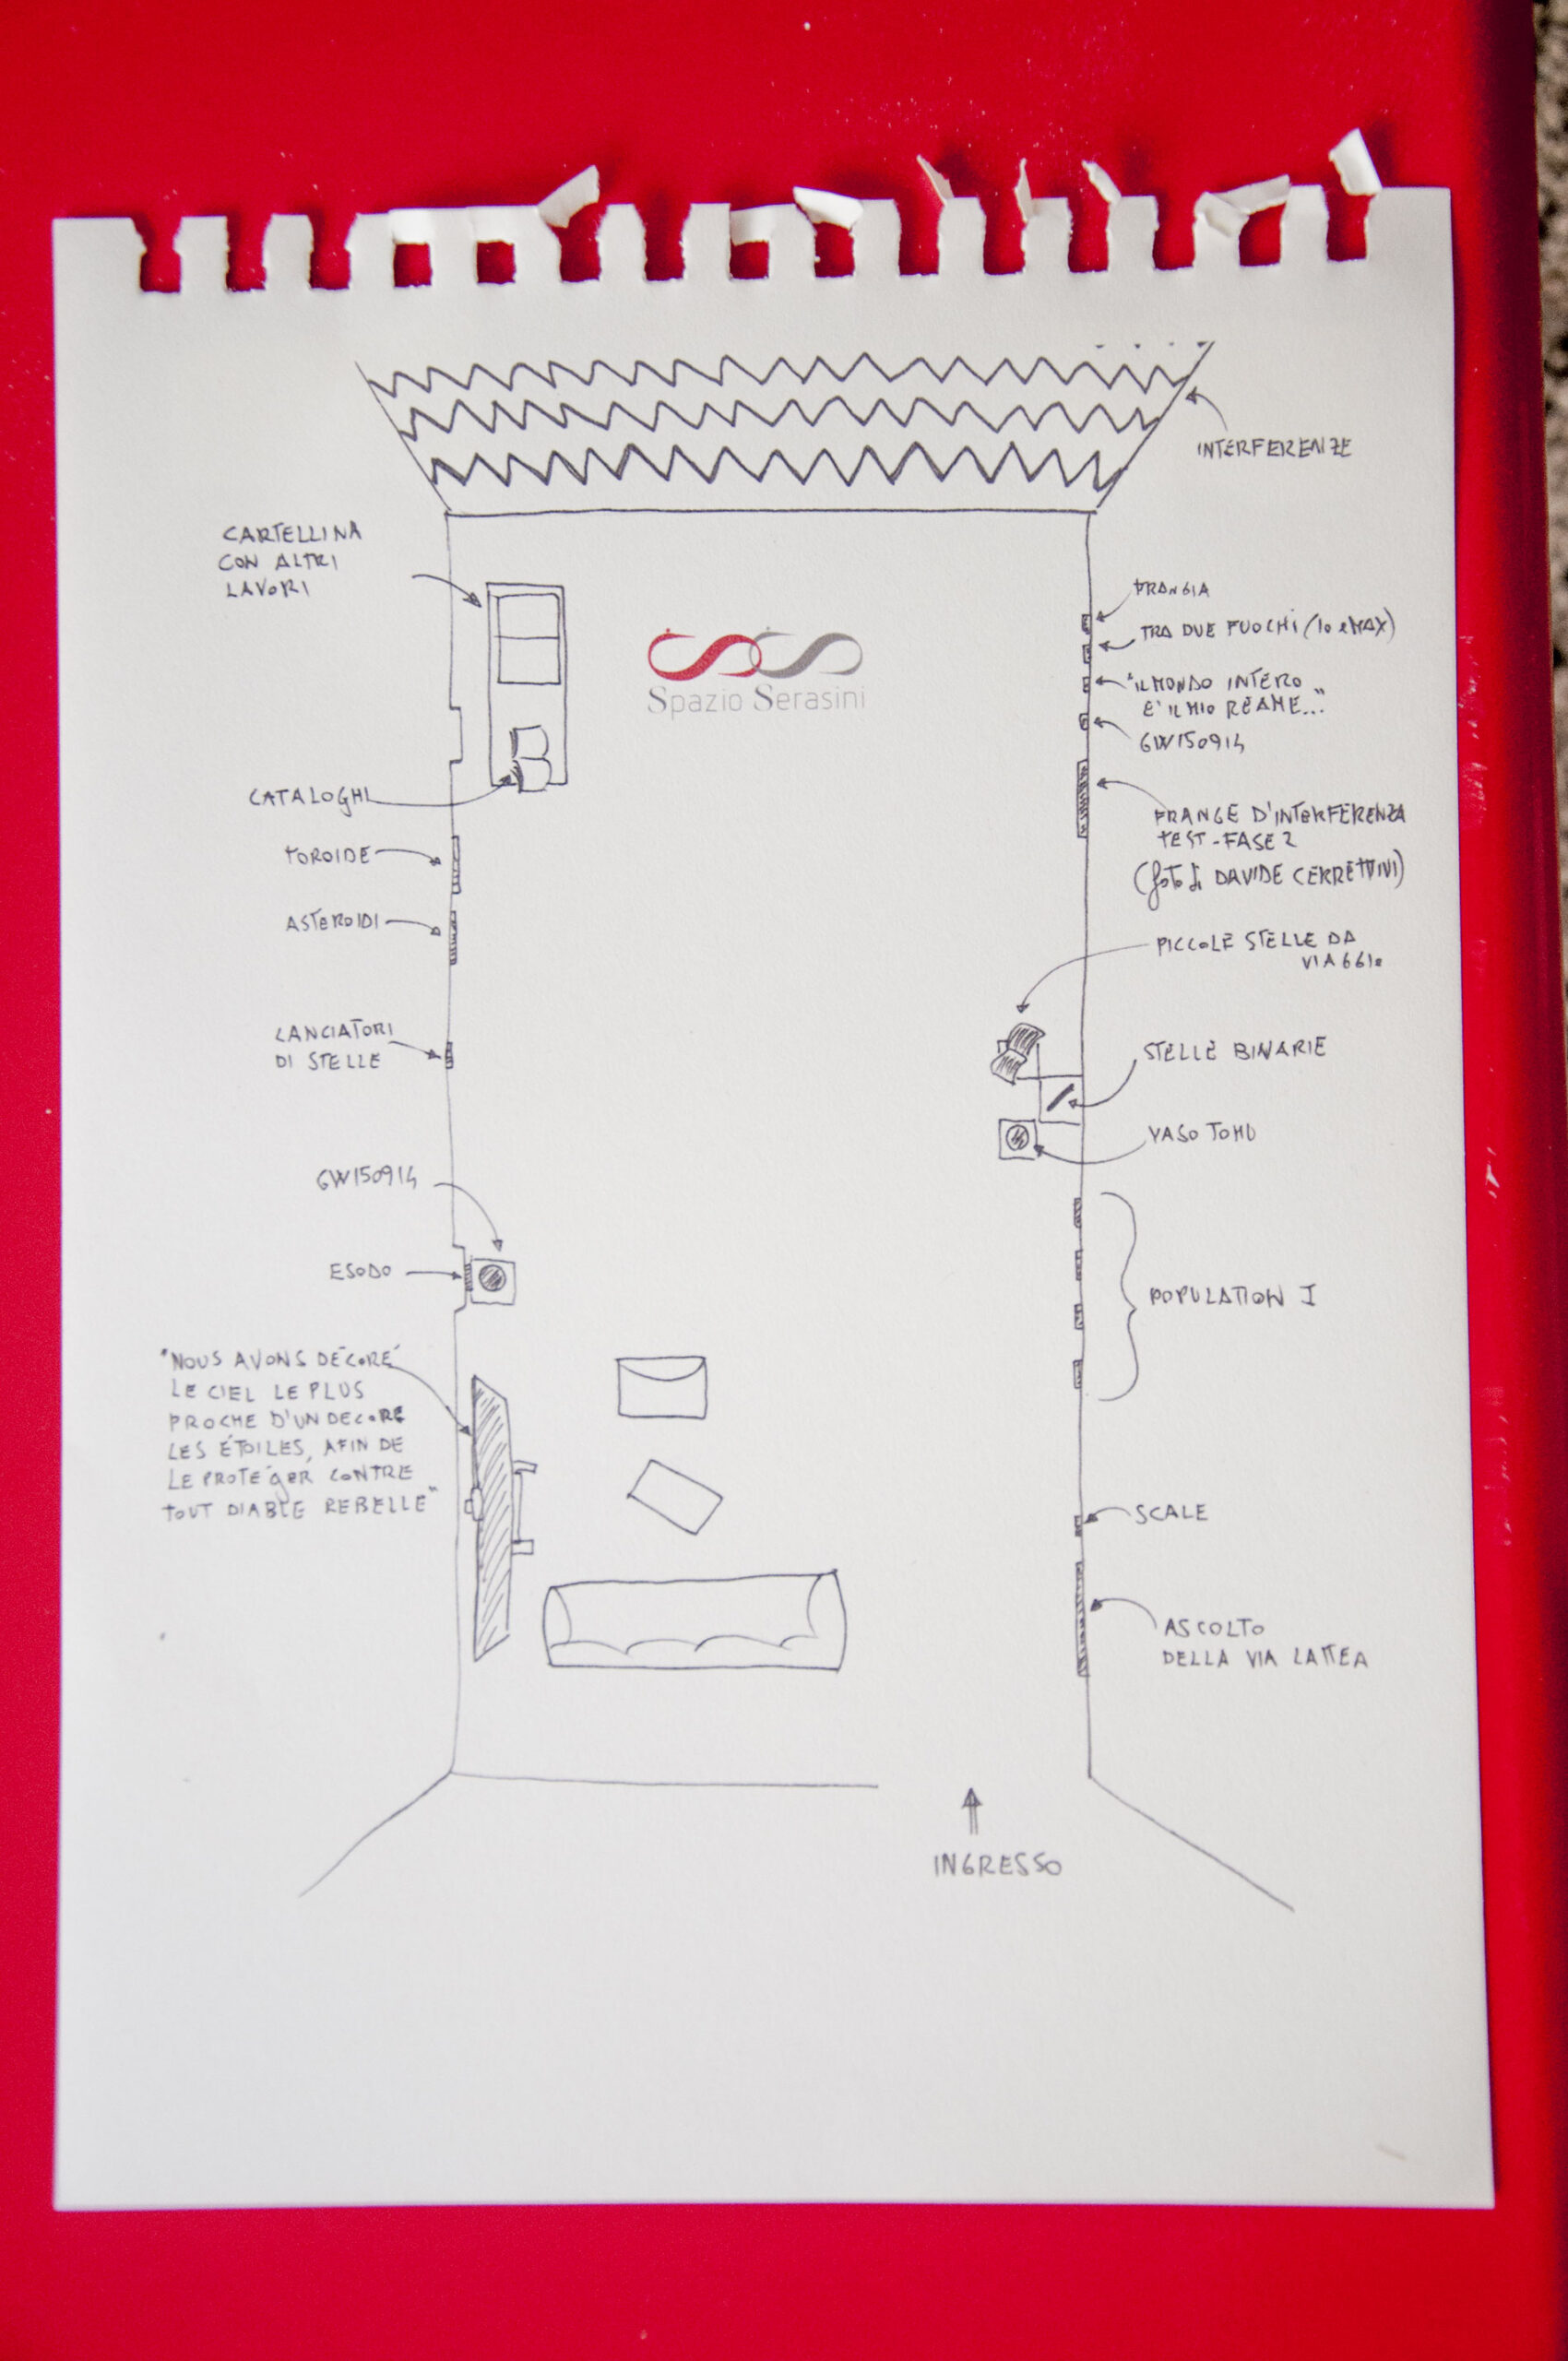 INTERFERENZE
CARTELLINA
CON ALTRI
LAVORI
Spazio Serasini
CATALOGHI
TOROIDE
ASTEROIDI
LANCIATORI
DI STELLE
GW150914
ESODO
"NOUS AVONS DÉCORÉ
LE CIEL LE PLUS
PROCHE D'UN DECORE
LES ÉTOILES, AFIN DE
LE PROTÉGER CONTRE
TOUT DIABLE REBELLE"
FRANGIA
TRA DUE FUOCHI (IO e MAX)
"IL MONDO INTERO
E' IL MIO REAME..."
GW150914
FRANGE D'INTERFERENZA
TEST-FASE 2
(foto di DAVIDE CERRETTINI)
PICCOLE STELLE DA
STELLE BINARIE
VASO
POPULATION I
SCALE
ASCOLTO
DELLA VIA LATTEA
INGRESSO